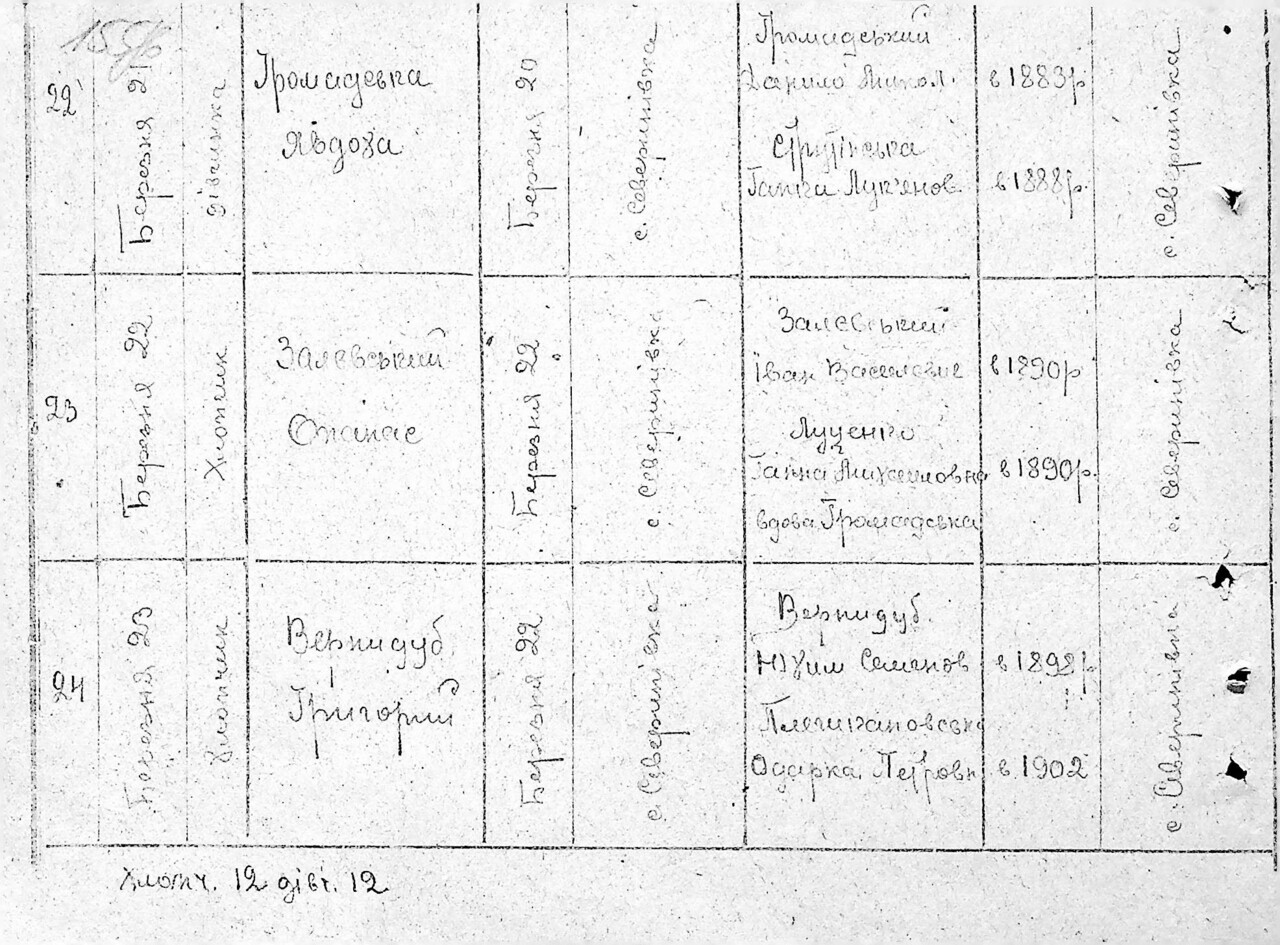 155
22
Березня 21
дівчинка
Громадська
Явдоха
Березня 20
с. Северинівка
Громадський
Данило Микол.
в 1883р
Струтінська
Ганна Лук'янов.
в 1888р.
с. Северинівка
23
Березня 22
Хлопчик
Залєвський
Опанас
Березня 22
с. Северинівка
Залєвський
Іван Василевич
в 1890р
Луценко
Ганна Михайловна
в 1890р.
вдова Громадська
с. Северинівка
24
Березня 23
Хлопчик
Вернидуб
Григорий
Березня 22
с. Северинівка
Вернидуб
Юхим Семенов
в 1898р
Одарка Петровн
в 1902
с. Северинівка
Хлопч. 12 дівч. 12